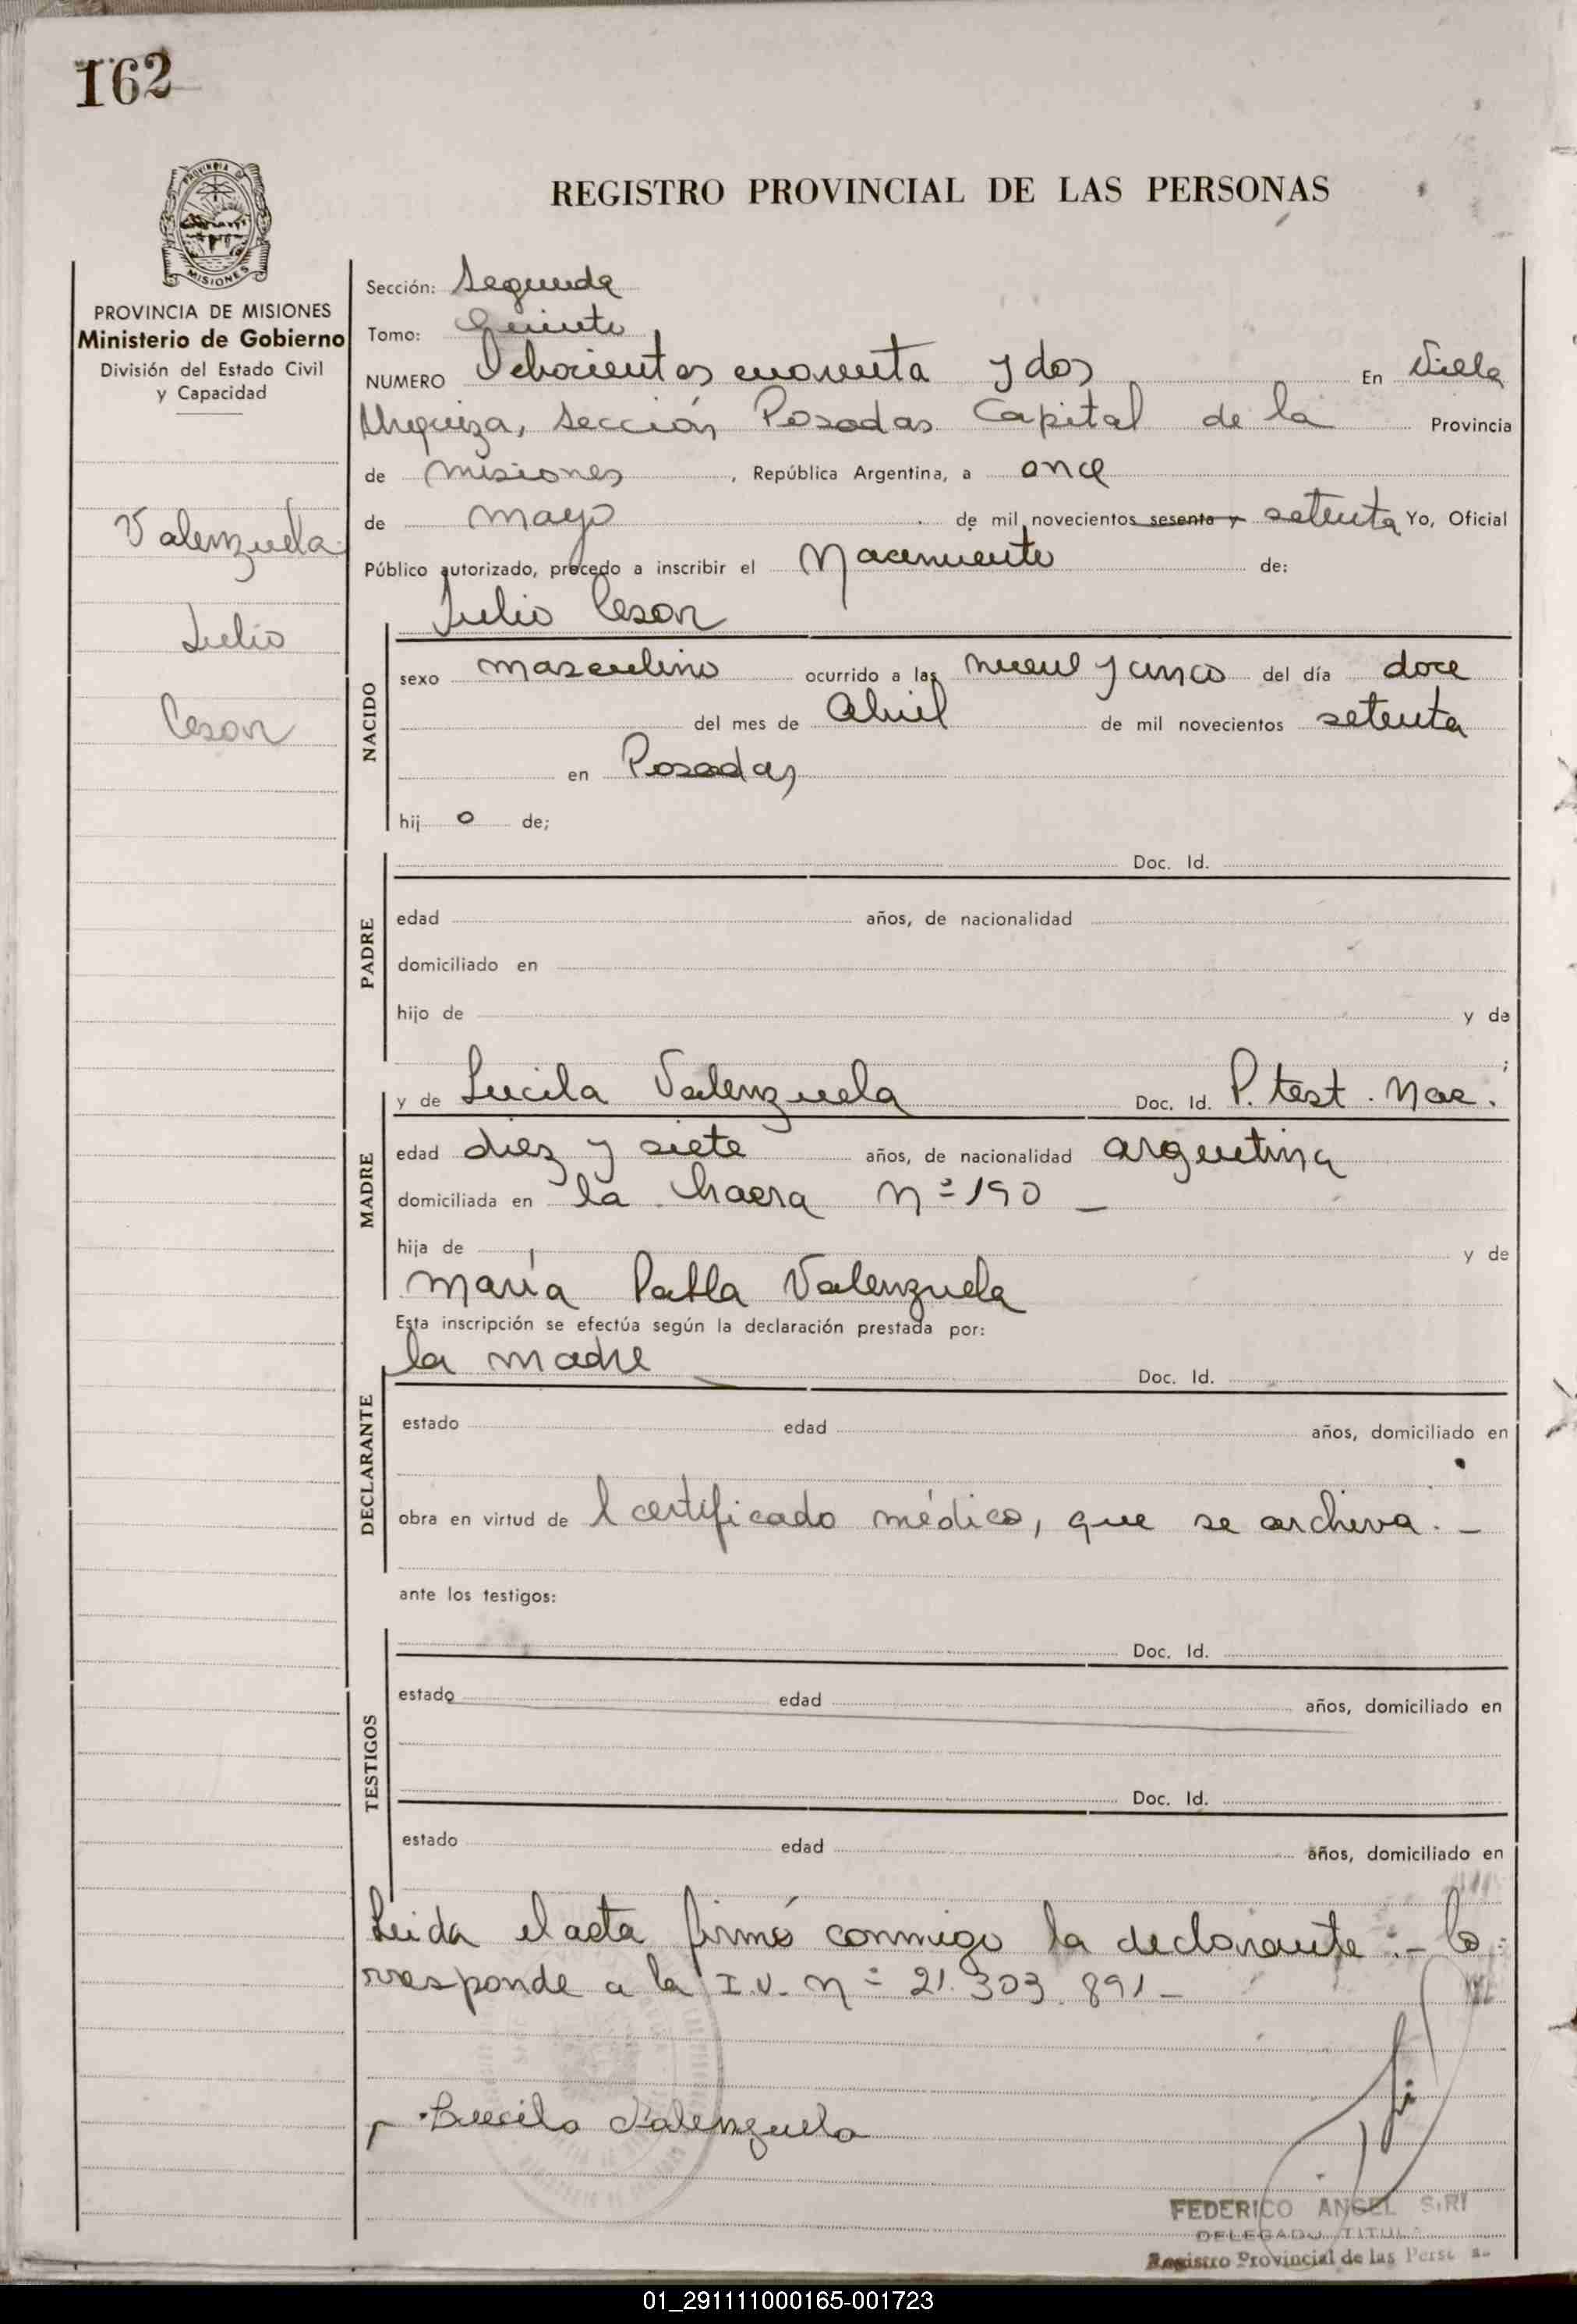 162
PROVINCIA DE
MISIONES
REGISTRO PROVINCIAL DE LAS PERSONAS
PROVINCIA DE MISIONES
Ministerio de Gobierno
División del Estado Civil
y Capacidad
Valenzuela
Julio
Cesar
Sección: Segunda
Tomo: Quinto
NUMERO Ochocientos cuarenta y dos En Villa
Urquiza, Sección Posadas Capital de la Provincia
de misiones, República Argentina, a once
de mayo de mil novecientos sesenta y setenta Yo, Oficial
Público autorizado, procedo a inscribir el Nacimiento de:
Julio Cesar
NACIDO
sexo masculino ocurrido a las nueve y cinco del día doce
del mes de Abril de mil novecientos setenta
en Posadas
hij o de;
PADRE
Doc. Id.
edad años, de nacionalidad
domiciliado en
hijo de y de
;
MADRE
y de Lucila Valenzuela Doc. Id. P. test. Nac.
edad diez y siete años, de nacionalidad argentina
domiciliada en la chacra Nº 190 _
hija de y de
María Pabla Valenzuela
Esta inscripción se efectúa según la declaración prestada por:
DECLARANTE
la madre Doc. Id.
estado edad años, domiciliado en
obra en virtud de l certificado médico, que se archiva. -
ante los testigos:
TESTIGOS
Doc. Id.
estado edad años, domiciliado en
Doc. Id.
estado edad años, domiciliado en
Leida el acta firmó conmigo la declarante.- Co-
rresponde a la I.U. Nº 21.303.891 -
Lucila Valenzuela
FEDERICO ANGEL SIRI
DELEGADO
Registro Provincial de las
01_291111000165-001723